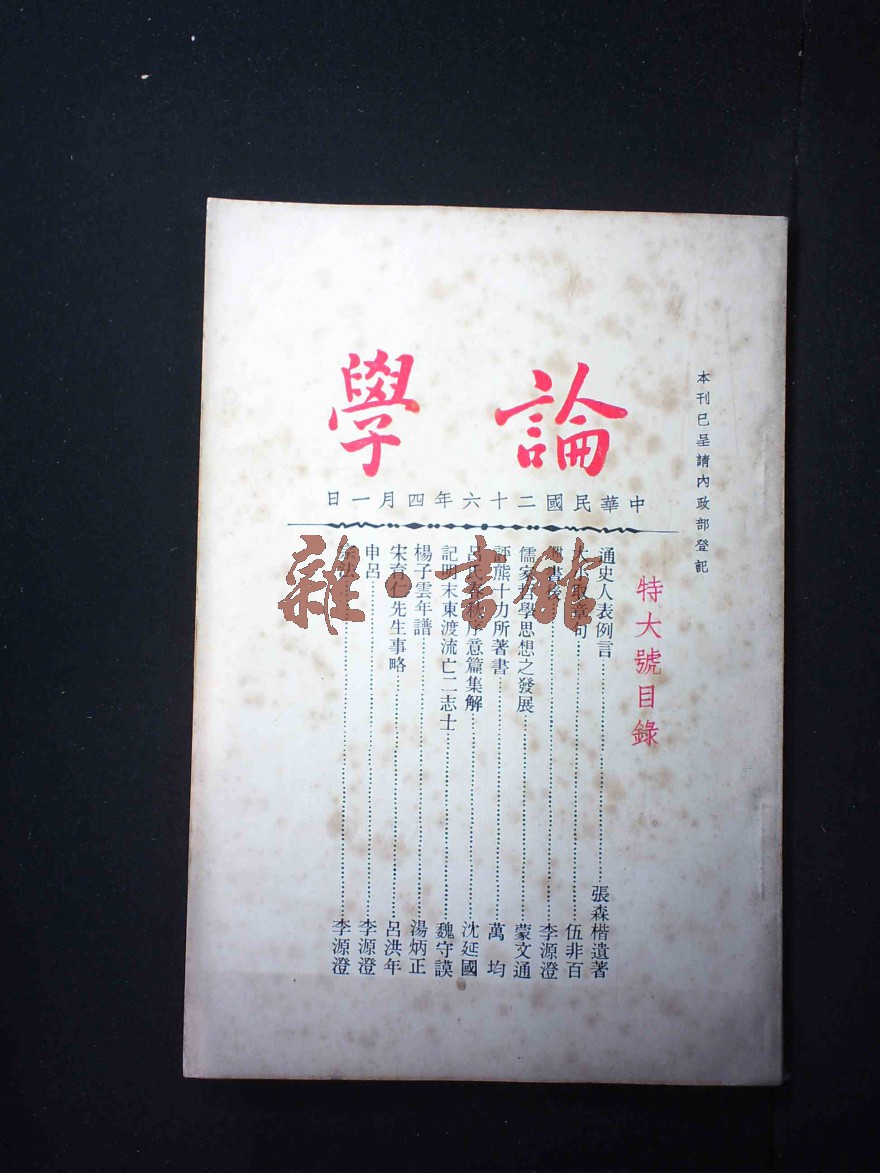 論學
本刊已呈請內政部登記
中華民國二十六年四月一日
特大號目錄
通史人表例言……張森楷遺著
大小取章句……伍非百
書後……李源澄
儒家哲學思想之發展……蒙文通
評熊十力所著書……萬均
呂氏春秋序意篇集解……沈延國
記明末東渡流亡二志士……魏守謨
楊子雲年譜……湯炳正
宋育仁先生事略……呂洪年
申呂……李源澄
……李源澄
雜·書館